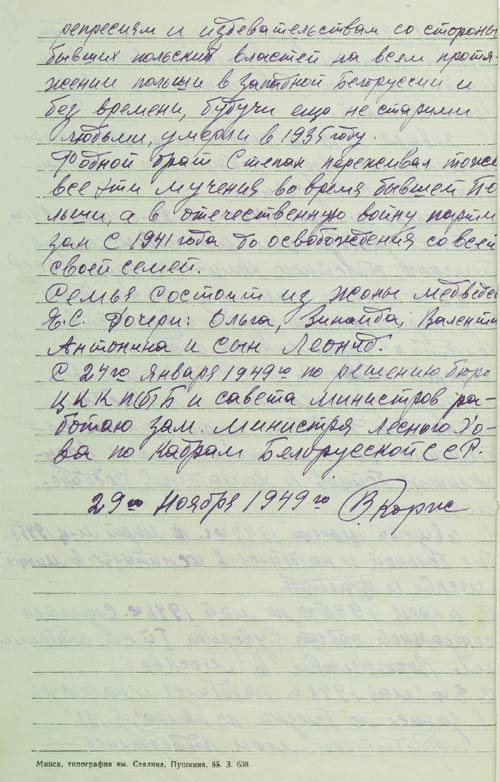 репресиям и избевательствам со стороны
бывших польских властей на всем протя-
жении польши в западной Белоруссии и
без времени, будучи ещо не старыми
людьми, умерли в 1935 году.
Родной брат Степан переживал тоже
все эти мучения во время бывшей По
льши, а в отечественную войну парти
зан с 1941 года до освобождения со всей
своей семей.
Семья состоит из жоны Медведе
Е.С. Дочери: Ольга, Зинаида, Валенти
Антонина и сын Леонид.
С 24го января 1949го по решению бюро
ЦК КП(б)Б и савета министров ра-
ботаю зам. министра лесного хо-
ва по кадрам Белорусской ССР.
29го Ноября 1949го В. Корж
Минск, типография им. Сталина, Пушкина, 55. З. 638